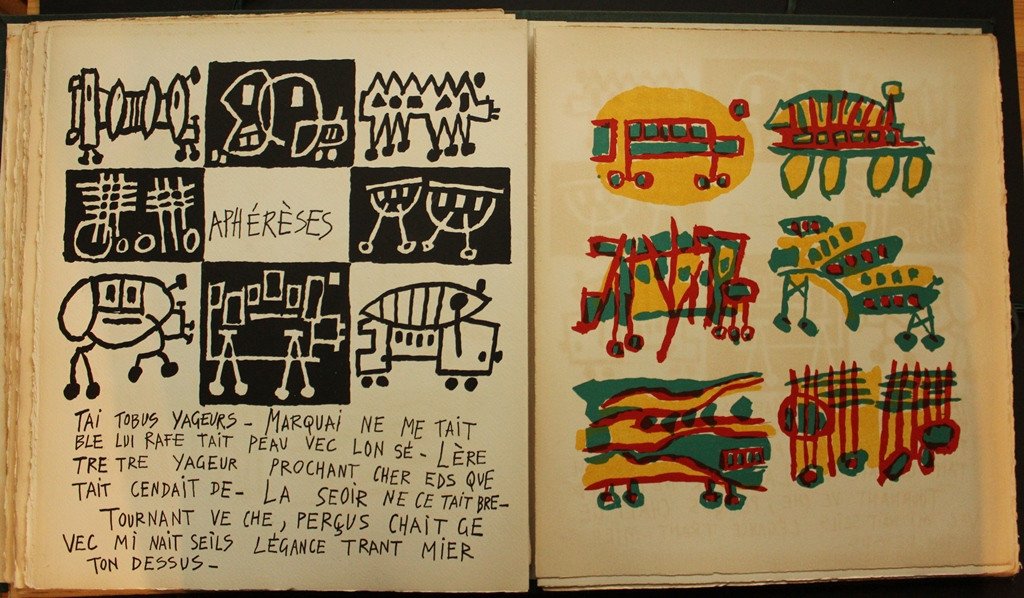 APHÉRÈSES
TAI TOBUS YAGEURS – MARQUAI NE ME TAIT
BLE LUI RAFE TAIT PEAU VEC LON SÉ – LÈRE
TRE TRE YAGEUR PROCHANT CHER EDS QUE
TAIT CENDAIT DE – LA SEOIR NE CE TAIT BRE –
TOURNANT VE CHE, PERÇUS CHAIT GE
VEC MI NAIT SEILS LÉGANCE TRANT MIER
TON DESSUS –